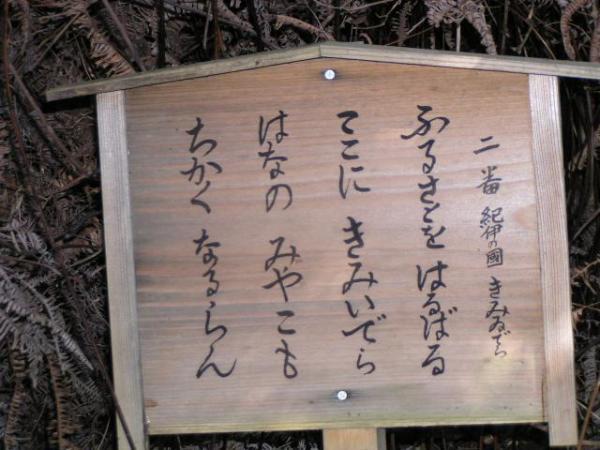 二番 紀伊の國 きみゐでら
ふるさとを はるばる
ここに きみいでら
はなの みやこも
ちかく なるらん